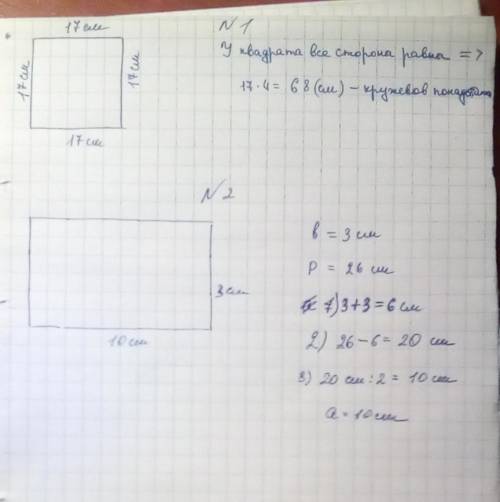 N 1
17 см
17 см
17 см
17 см
У квадрата все сторона равна =>
17·4 = 68 (см) – кружевов понадобится
N 2
3 см
10 см
в = 3 см
P = 26 см
1) 3+3=6 см
2) 26-6=20 см
3) 20 см:2= 10 см
a=10 см